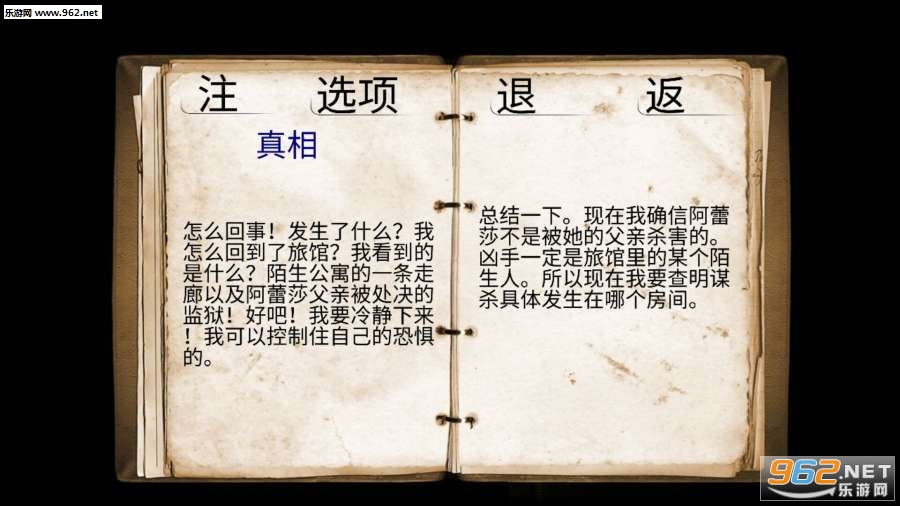 乐游网 www.962.net
注 选项 退 返
真相
怎么回事！发生了什么？我
怎么回到了旅馆？我看到的
是什么？陌生公寓的一条走
廊以及阿蕾莎父亲被处决的
监狱！好吧！我要冷静下来
！我可以控制住自己的恐惧
的。
总结一下。现在我确信阿蕾
莎不是被她的父亲杀害的。
凶手一定是旅馆里的某个陌
生人。所以现在我要查明谋
杀具体发生在哪个房间。
962.NET
乐游网